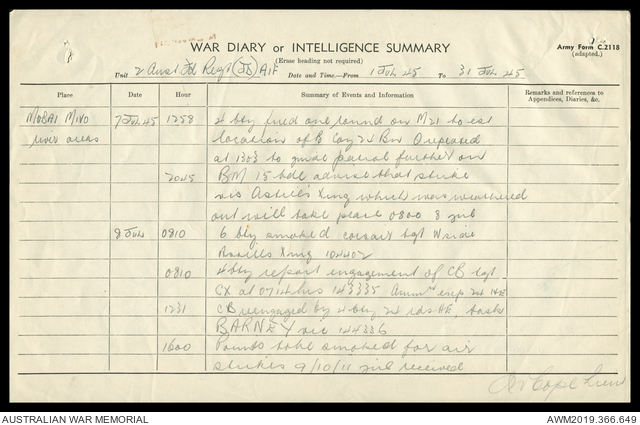 WAR DIARY or INTELLIGENCE SUMMARY
Army Form C.2118
(adapted.)
(Erase heading not required)
Unit 2 Aust Fd Regt AIF Date and Time—From 1 Jul 45 To 31 Jul 45
Place Date Hour Summary of Events and Information Remarks and references to Appendices, Diaries, &c.
MOBAI MIVO 7 Jul 45 1258 4 bty fired one round on M21 to est
river areas location of B Coy 24 Bn repeated
at 1303 to guide patrol further on
2045 BM 15 bde advise that strike
vic Astill's Xing which was weathered
out will take place 0800 8 Jul
8 Jul 0810 6 bty smoked corsair tgt W side
Astills Xing 104402
0810 4 bty report engagement of CB tgt
CX at 0714 hrs 143335 Ammn exp 24 HE
1231 CB reengaged by 4 bty 24 rds HE, task
BARNEY vic 144336
1600 smoked for air
strikes 9/10/11 Jul received
AUSTRALIAN WAR MEMORIAL
AWM2019.366.649